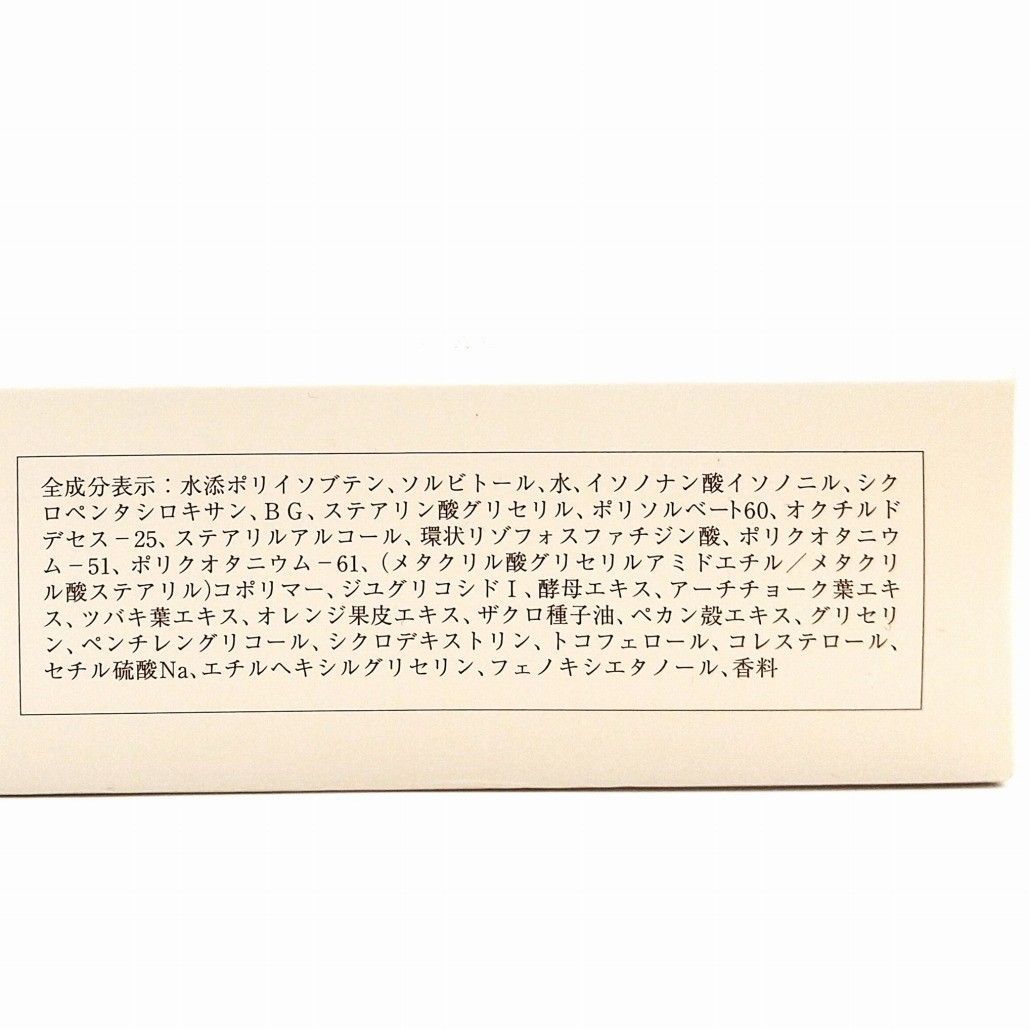 全成分表示：水添ポリイソブテン、ソルビトール、水、イソノナン酸イソノニル、シク
ロペンタシロキサン、ＢＧ、ステアリン酸グリセリル、ポリソルベート60、オクチルド
デセス－25、ステアリルアルコール、環状リゾフォスファチジン酸、ポリクオタニウ
ム－51、ポリクオタニウム－61、(メタクリル酸グリセリルアミドエチル／メタクリ
ル酸ステアリル)コポリマー、ジユグリコシドＩ、酵母エキス、アーチチョーク葉エキ
ス、ツバキ葉エキス、オレンジ果皮エキス、ザクロ種子油、ペカン殻エキス、グリセリ
ン、ペンチレングリコール、シクロデキストリン、トコフェロール、コレステロール、
セチル硫酸Na、エチルヘキシルグリセリン、フェノキシエタノール、香料